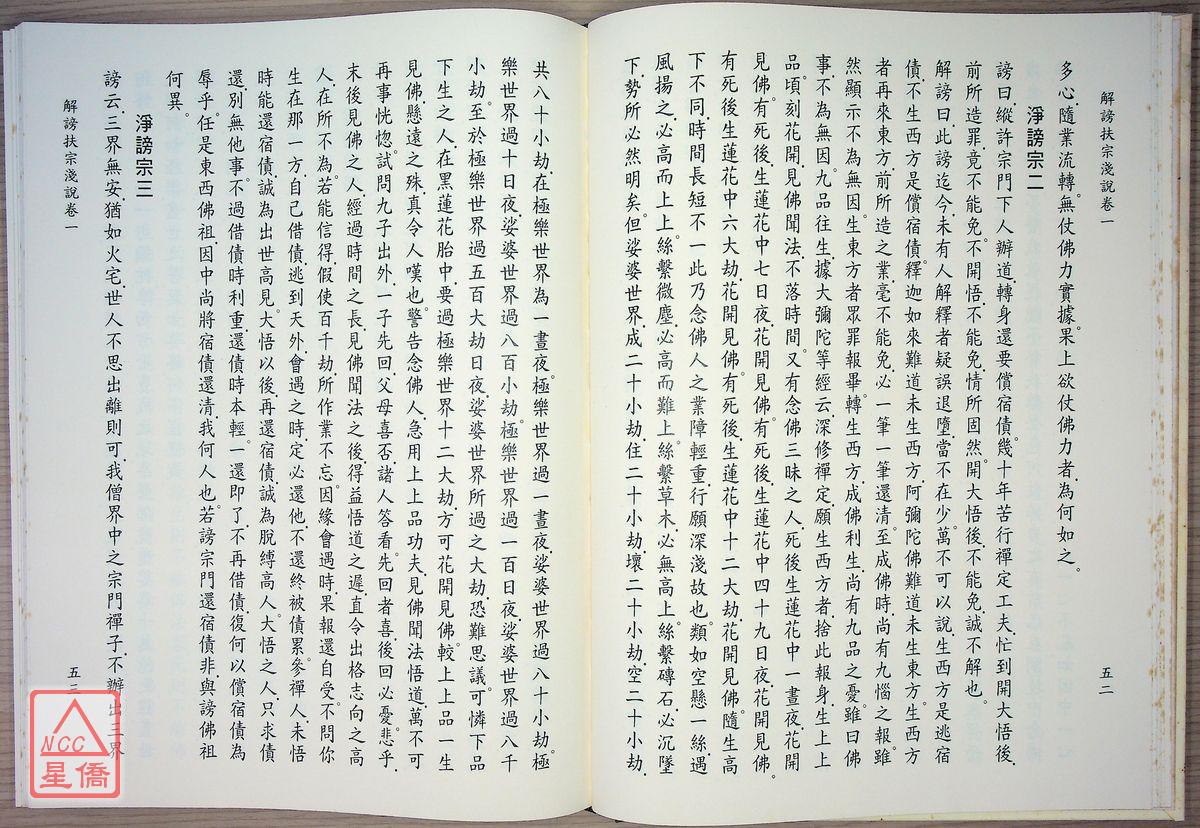 解謗扶宗淺說卷一
五二
多心隨業流轉。無仗佛力實據。果上欲仗佛力者為何如之。
淨謗宗二
謗曰縱許宗門下人辦道轉身還要償宿債幾十年苦行禪定工夫忙到開大悟後
前所造罪竟不能免不開悟不能免情所固然開大悟後不能免誠不解也。
解謗曰此謗迄今未有人解釋者疑誤退墮當不在少萬不可以說生西方是逃宿
債不生西方是償宿債釋迦如來難道未生西方阿彌陀佛難道未生東方。生西方
者再來東方前所造之業毫不能免必一筆一筆還清。至成佛時尚有九惱之報雖
然顯示不為無因。生東方者眾罪報畢轉生西方成佛利生尚有九品之憂雖曰佛
事不為無因。九品往生據大彌陀等經云深修禪定願生西方者捨此報身生上上
品頃刻花開見佛聞法不落時間。又有念佛三昧之人死後生蓮花中一晝夜花開
見佛。有死後生蓮花中七日夜花開見佛。有死後生蓮花中四十九日夜花開見佛。
有死後生蓮花中六大劫花開見佛。有死後生蓮花中十二大劫花開見佛。隨生高
下不同時間長短不一此乃念佛人之業障輕重行願深淺故也。類如空懸一絲遇
風揚之必高而上上。絲繫微塵必高而難上。絲繫草木必無高上。絲繫磚石必沉墜
下勢所必然明矣。但娑婆世界成二十小劫住二十小劫壞二十小劫空二十小劫
共八十小劫在極樂世界為一晝夜。極樂世界過一晝夜娑婆世界過八十小劫。極
樂世界過十日夜娑婆世界過八百小劫。極樂世界過一百日夜娑婆世界過八千
小劫。至於極樂世界過五百大劫日夜娑婆世界所過之大劫恐難思議。可憐下品
下生之人在黑蓮花胎中要過極樂世界十二大劫方可花開見佛較上上品一生
見佛懸遠之殊真令人嘆也。警告念佛人急用上上品功夫見佛聞法悟道萬不可
再事恍惚試問九子出外一子先回父母喜否諸人答看先回者喜後回必憂。悲乎
末後見佛之人經過時間之長見佛聞法之後得益悟道之遲直令出格志向之高
人在所不為。若能信得假使百千劫所作業不忘。因緣會遇時果報還自受。不問你
生在那一方自己借債逃到天外會遇之時定必還他不還終被債累。參禪人未悟
時能還宿債誠為出世高見。大悟以後再還宿債誠為脫縛高人。大悟之人只求債
還別無他事。不過借債時利重還債時本輕一還即了不再借債復何以償宿債為
辱乎。任是東西佛祖因中尚將宿債還清我何人也若謗宗門還宿債非與謗佛祖
何異。
淨謗宗三
謗云三界無安猶如火宅世人不思出離則可我僧界中之宗門禪子不辦出三界
解謗扶宗淺說卷一
五三
NCC
星僑